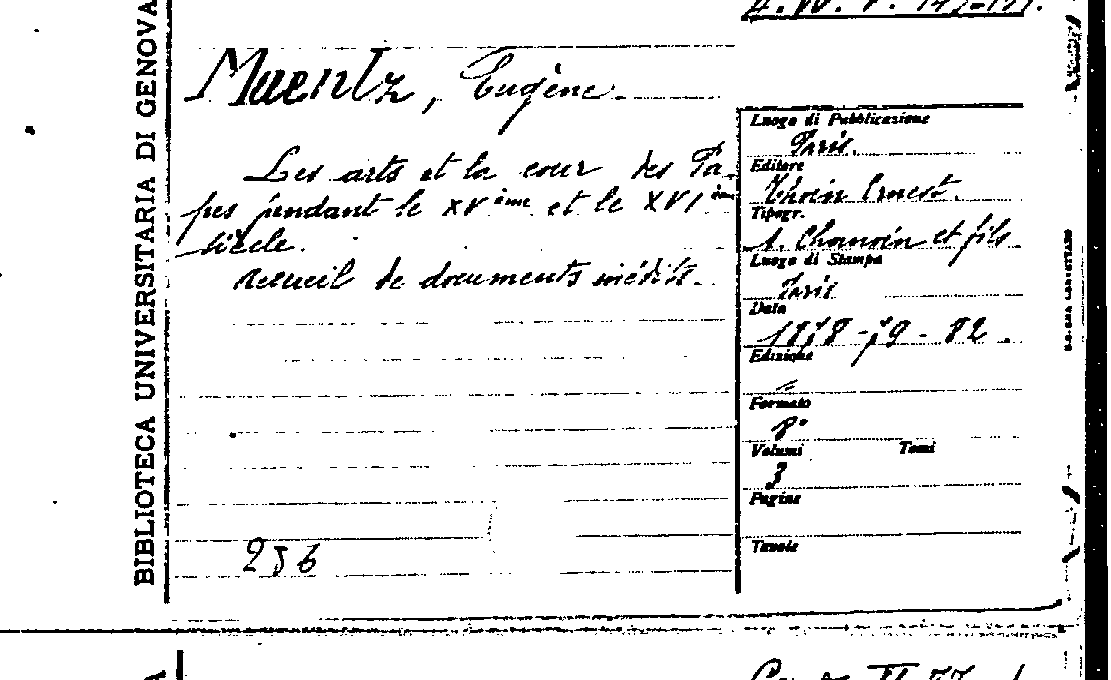 BIBLIOTECA UNIVERSITARIA DI GENOVA
Muentz, Eugène.
Les arts et la cour des Pa-
pes pendant le XVème et le XVIème
siècle.
Recueil de documents inédits.
256
Luogo di Pubblicazione
Paris.
Editore
Thorin Ernest.
Tipogr.
A. Chanoin et fils
Luogo di Stampa
Paris
Data
1878-79-82.
Edizione
Formato
8°
Volumi Tomi
3
Pagine
Tavole